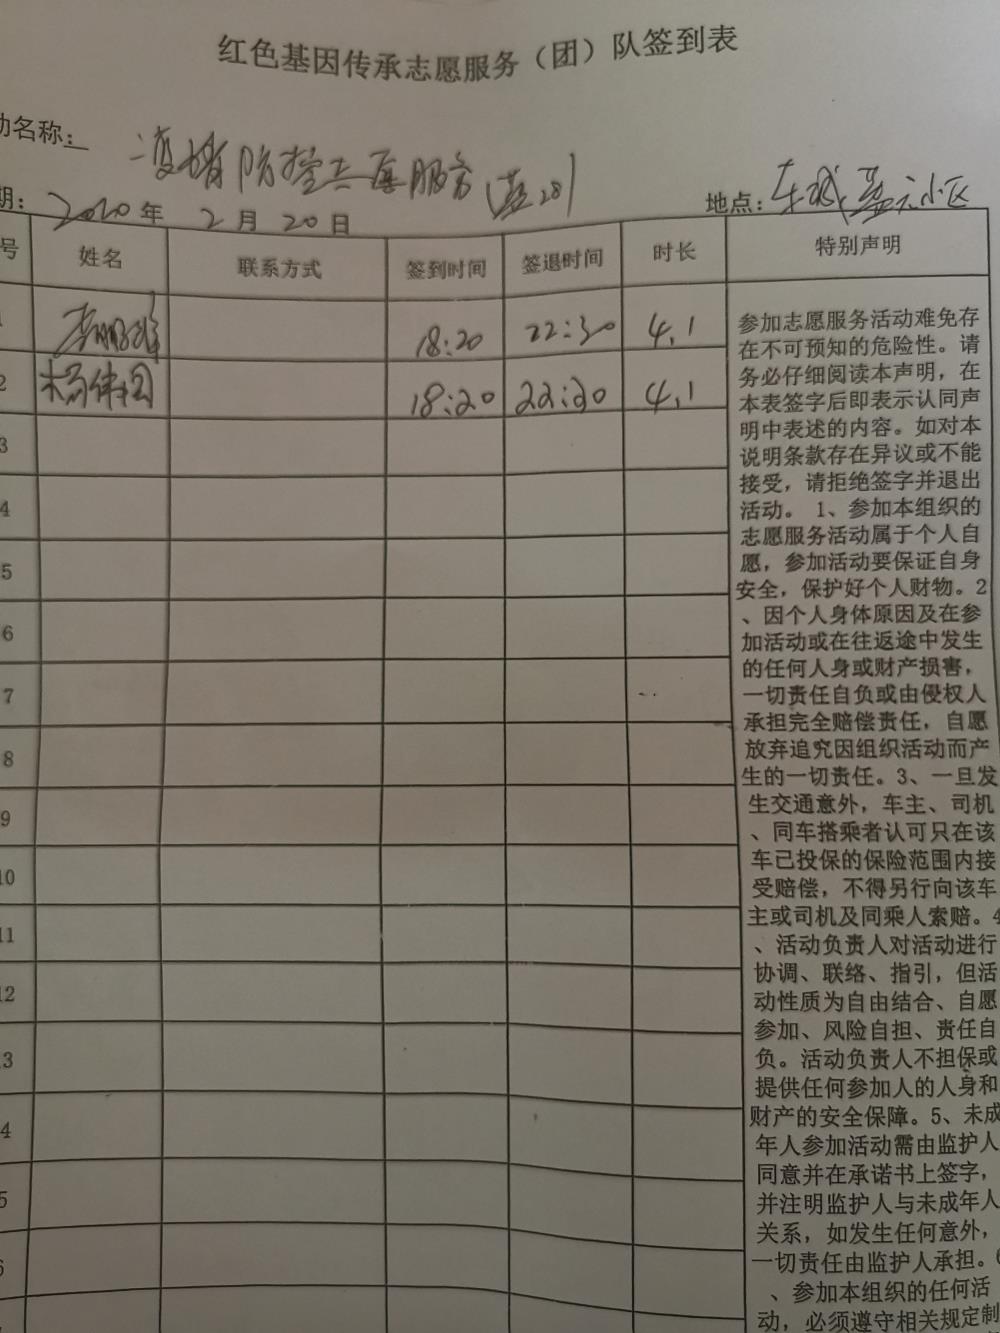 红色基因传承志愿服务（团）队签到表
动名称：防控志愿服务
期：2020年2月20日 地点：小区
号 姓名 联系方式 签到时间 签退时间 时长 特别声明
1 18:20 22:30 4.1
2 18:20 22:30 4.1
3
4
5
6
7
8
9
10
11
12
3
4
5
6
参加志愿服务活动难免存
在不可预知的危险性。请
务必仔细阅读本声明，在
本表签字后即表示认同声
明中表述的内容。如对本
说明条款存在异议或不能
接受，请拒绝签字并退出
活动。1、参加本组织的
志愿服务活动属于个人自
愿，参加活动要保证自身
安全，保护好个人财物。2
、因个人身体原因及在参
加活动或在往返途中发生
的任何人身或财产损害，
一切责任自负或由侵权人
承担完全赔偿责任，自愿
放弃追究因组织活动而产
生的一切责任。3、一旦发
生交通意外，车主、司机
、同车搭乘者认可只在该
车已投保的保险范围内接
受赔偿，不得另行向该车
主或司机及同乘人索赔。4
、活动负责人对活动进行
协调、联络、指引，但活
动性质为自由结合、自愿
参加、风险自担、责任自
负。活动负责人不担保或
提供任何参加人的人身和
财产的安全保障。5、未成
年人参加活动需由监护人
同意并在承诺书上签字，
并注明监护人与未成年人
关系，如发生任何意外，
一切责任由监护人承担。6
、参加本组织的任何活
动，必须遵守相关规定制